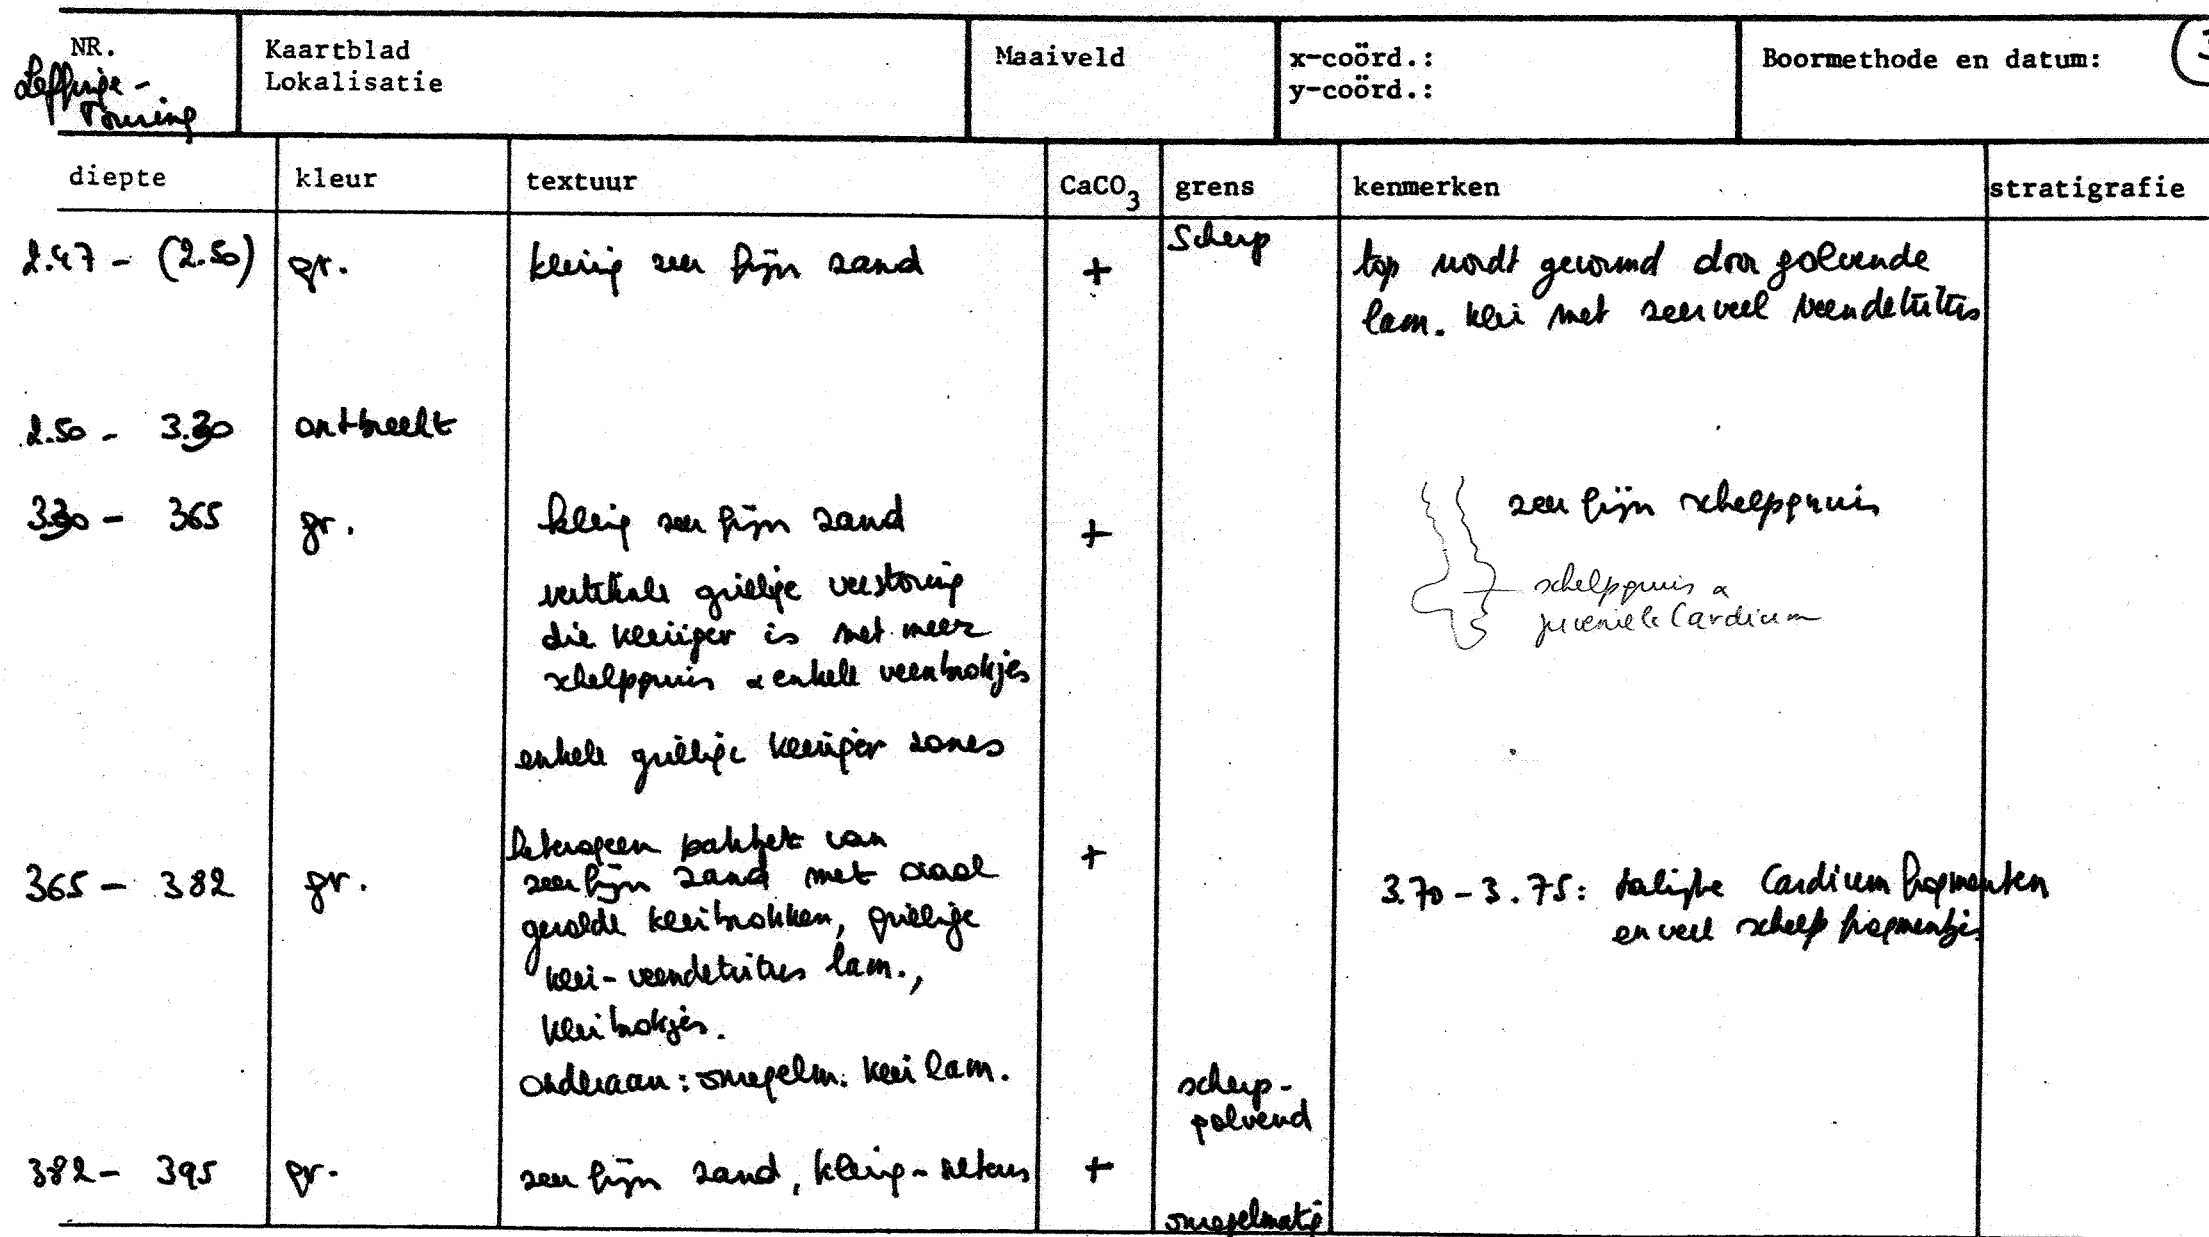 NR.
Leffinge -
Touring
Kaartblad
Lokalisatie
Maaiveld
x-coörd.:
y-coörd.:
Boormethode en datum:
diepte kleur textuur CaCO3 grens kenmerken stratigrafie
Scherp
2.47 - (2.50) gr. kleiig zeer fijn zand + top wordt gevormd door golvende
lam. klei met zeer veel veendetritus
2.50 - 3.30 ontbreekt
330 - 365 gr. kleiig zeer fijn zand + zeer fijn schelpgruis
vertikale grillige verstoring
die kleiiger is met meer
schelpgruis & enkele veenbrokjes
schelpgruis &
juveniele Cardium
enkele grillige kleiiger zones
365 - 382 gr. heterogeen pakket van +
zeer fijn zand met ovaal
gerolde kleibrokken, grillige
klei-veendetritus lam.,
kleibrokjes.
onderaan: onregelm. klei lam.
3.70 - 3.75: talrijke Cardium fragmenten
en veel schelp fragmentjes
scherp -
golvend
382 - 395 gr. zeer fijn zand, kleiig - +
onregelmatig